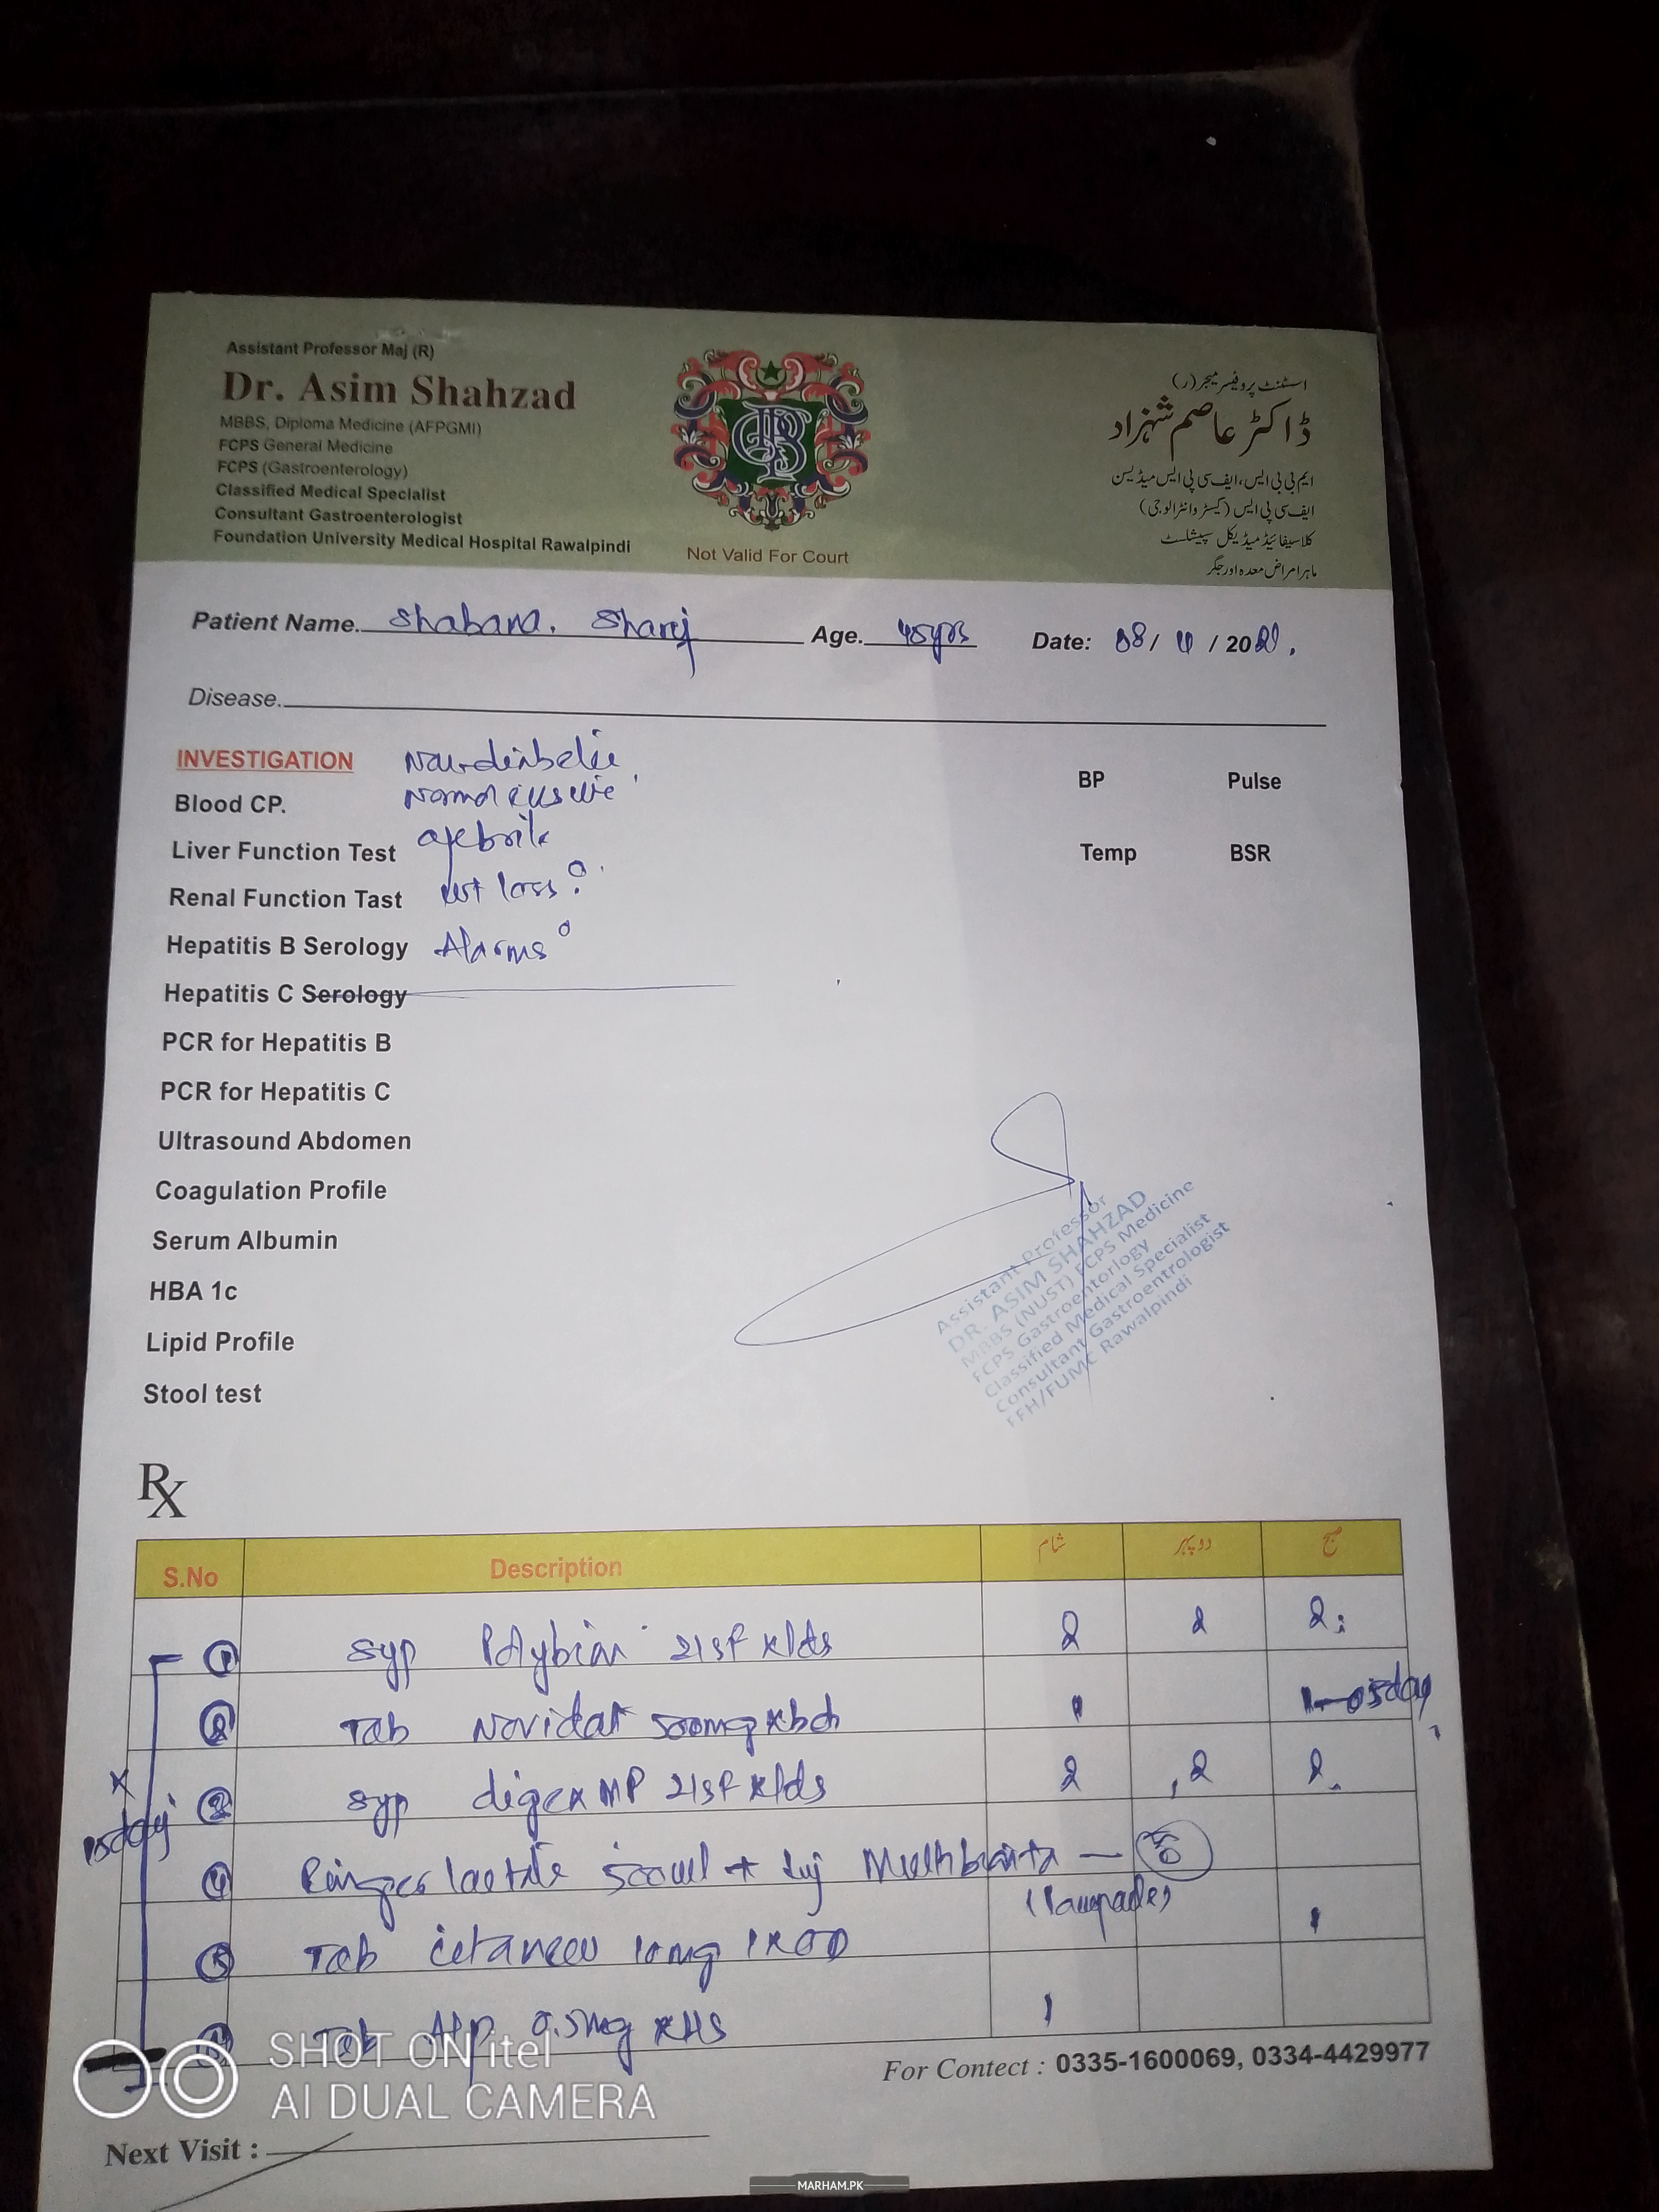 Assistant Professor Maj (R)
Dr. Asim Shahzad
MBBS, Diploma Medicine (AFPGMI)
FCPS General Medicine
FCPS (Gastroenterology)
Classified Medical Specialist
Consultant Gastroenterologist
Foundation University Medical Hospital Rawalpindi
Not Valid For Court
اسسٹنٹ پروفیسر میجر (ر)
ڈاکٹر عاصم شہزاد
ایم بی بی ایس، ایف سی پی ایس میڈیسن
ایف سی پی ایس (گیسٹروانٹرالوجی)
کلاسیفائیڈ میڈیکل سپیشلسٹ
ماہر امراض معدہ اور جگر
Patient Name. Shabana. Age. 45yrs Date: 08/ / 20
Disease.
INVESTIGATION
BP Pulse
Blood CP.
Liver Function Test afebrile
Temp BSR
Renal Function Tast wt loss
Hepatitis B Serology Alarms
Hepatitis C Serology
PCR for Hepatitis B
PCR for Hepatitis C
Ultrasound Abdomen
Coagulation Profile
Serum Albumin
HBA 1c
Lipid Profile
Stool test
Assistant Professor
DR. ASIM SHAHZAD
MBBS (NUST) FCPS Medicine
FCPS Gastroentorlogy
Classified Medical Specialist
Consultant Gastroentrologist
FFH/FUMC Rawalpindi
Rx
S.No Description شام دوپہر صبح
1 Syp 2 2 2
2 Tab Novidat 500mg 1
Syp digex MP 2 2 2
4 Ringer lactate 500ml +
5 Tab 10mg 1
Tab Alp 0.5mg 1
x 15day
For Contect : 0335-1600069, 0334-4429977
Next Visit :
SHOT ON itel
AI DUAL CAMERA
MARHAM.PK